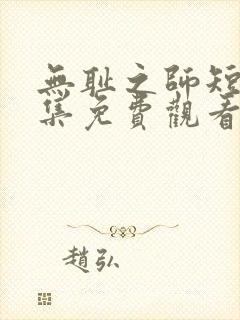 無耻之師短
集免費觀看
趙弘